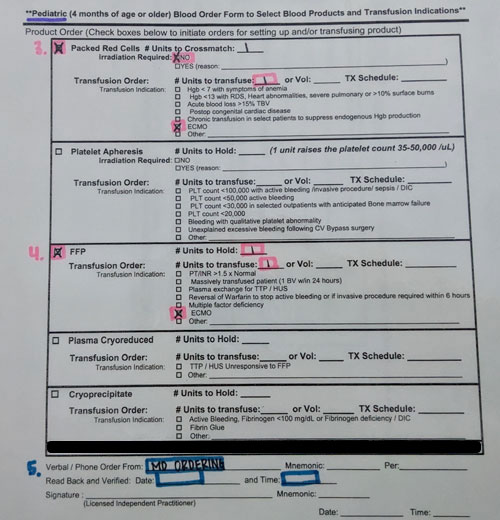 **Pediatric (4 months of age or older) Blood Order Form to Select Blood Products and Transfusion Indications**
Product Order (Check boxes below to initiate orders for setting up and/or transfusing product)
3. ☒ Packed Red Cells # Units to Crossmatch: 1
Irradiation Required: ☒NO
☐YES (reason: )
Transfusion Order: # Units to transfuse: 1 or Vol: TX Schedule:
Transfusion Indication: ☐ Hgb < 7 with symptoms of anemia
☐ Hgb <13 with RDS, Heart abnormalities, severe pulmonary or >10% surface burns
☐ Acute blood loss >15% TBV
☐ Postop congenital cardiac disease
☐ Chronic transfusion in select patients to suppress endogenous Hgb production
☒ ECMO
☐ Other:
☐ Platelet Apheresis # Units to Hold: (1 unit raises the platelet count 35-50,000 /uL)
Irradiation Required: ☐NO
☐YES (reason: )
Transfusion Order: # Units to transfuse: or Vol: TX Schedule:
Transfusion Indication: ☐ PLT count <100,000 with active bleeding /invasive procedure/ sepsis / DIC
☐ PLT count <50,000 active bleeding
☐ PLT count <30,000 in selected outpatients with anticipated Bone marrow failure
☐ PLT count <20,000
☐ Bleeding with qualitative platelet abnormality
☐ Unexplained excessive bleeding following CV Bypass surgery
☐ Other:
4. ☒ FFP # Units to Hold: 1
Transfusion Order: # Units to transfuse: 1 or Vol: TX Schedule:
Transfusion Indication: ☐ PT/INR >1.5 x Normal
☐ Massively transfused patient (1 BV w/in 24 hours)
☐ Plasma exchange for TTP / HUS
☐ Reversal of Warfarin to stop active bleeding or if invasive procedure required within 6 hours
☐ Multiple factor deficiency
☒ ECMO
☐ Other:
☐ Plasma Cryoreduced # Units to Hold:
Transfusion Order: # Units to transfuse: or Vol: TX Schedule:
Transfusion Indication: ☐ TTP / HUS Unresponsive to FFP
☐ Other:
☐ Cryoprecipitate # Units to Hold:
Transfusion Order: # Units to transfuse: or Vol: TX Schedule:
Transfusion Indication: ☐ Active Bleeding, Fibrinogen <100 mg/dL or Fibrinogen deficiency / DIC
☐ Fibrin Glue
☐ Other:
5. Verbal / Phone Order From: MD ORDERING Mnemonic: Per:
Read Back and Verified: Date: and Time:
Signature : Mnemonic:
(Licensed Independent Practitioner)
Date: Time: